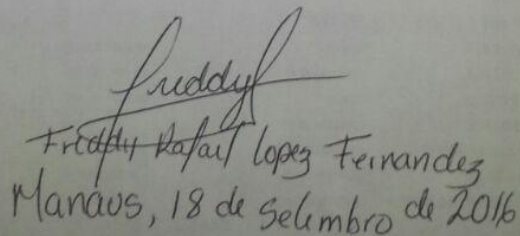 Freddy
Freddy Rafael Lopez Fernandez
Manaus, 18 de Setembro de 2016